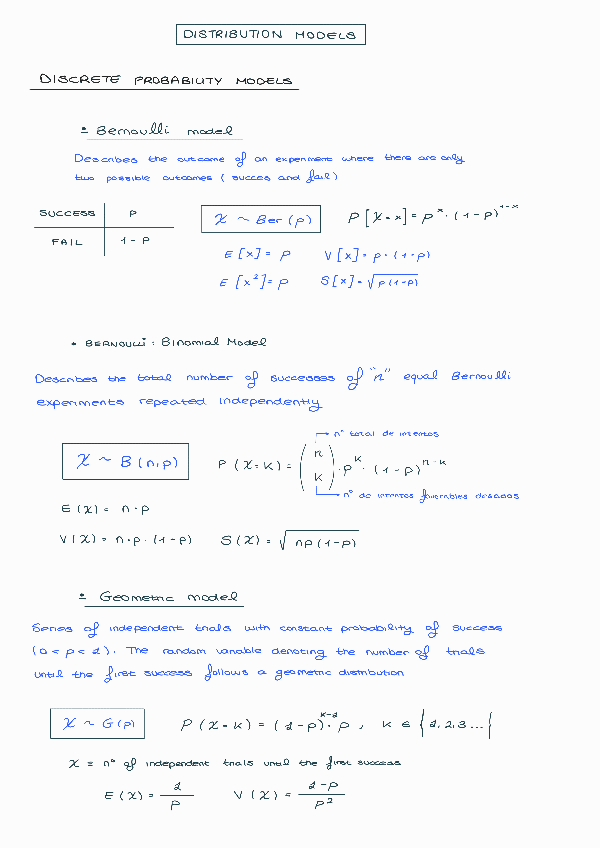 DISTRIBUTION MODELS
DISCRETE PROBABILITY MODELS
• Bernoulli model
Describes the outcome of an experiment where there are only
two possible outcomes (succes and fail)
SUCCESS P
FAIL 1 - P
X ~ Ber (p) P [X = x] = p^x · (1 - p)^{1-x}
E [x] = p V [x] = p · (1 - p)
E [x²] = p S [x] = √p (1 - p)
• BERNOULLI : Binomial Model
Describes the total number of successes of "n" equal Bernoulli
experiments repeated independently
nº total de intentos
X ~ B (n, p) P (X = K) = (n K) · p^K · (1 - p)^{n-k}
nº de intentos favorables deseados
E (X) = n · p
V (X) = n · p · (1 - p) S (X) = √np (1 - p)
• Geometric model
Series of independent trials with constant probability of success
(0 < p < 1). The random variable denoting the number of trials
until the first success follows a geometric distribution
X ~ G (p) P (X = K) = (1 - p)^{K-1} · p , K ∈ {1, 2, 3 ...}
X = nº of independent trials until the first success
E (X) = 1/p V (X) = 1-p/p²